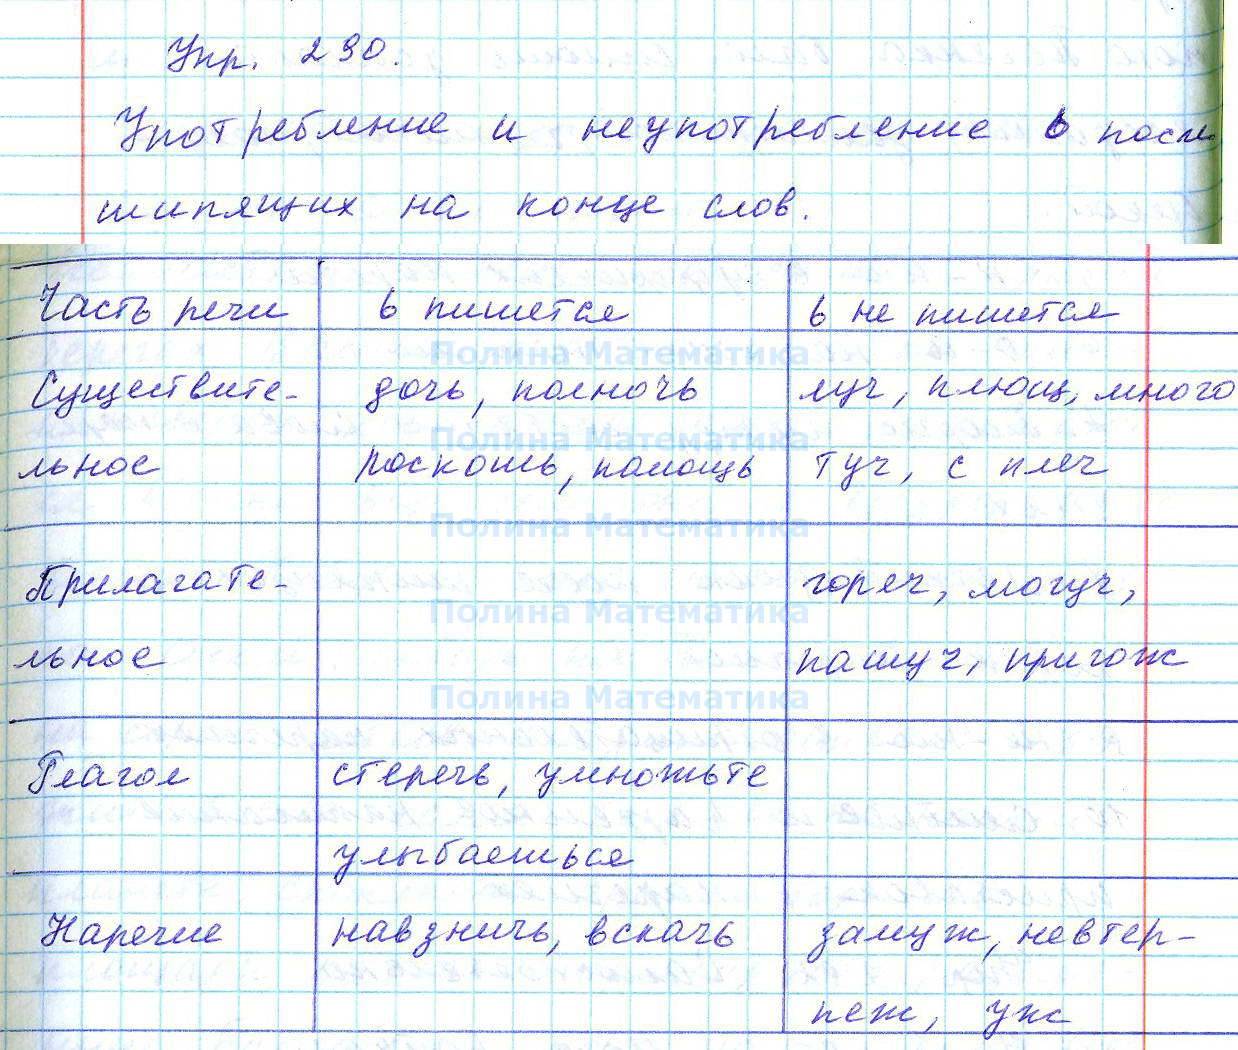 Упр. 290.
Употребление и неупотребление ь после
шипящих на конце слов.
Часть речи ь пишется ь не пишется
Полина Математика
Существите- дочь, полночь луч, плющ, много
Полина Математика
льное роскошь, помощь туч, с плеч
Полина Математика
Прилагате- горяч, могуч,
Полина Математика
льное пашуч, пригож
Полина Математика
Глагол стеречь, умножьте
улыбаешься
Наречие навзничь, вскачь замуж, невтер-
пеж, уж